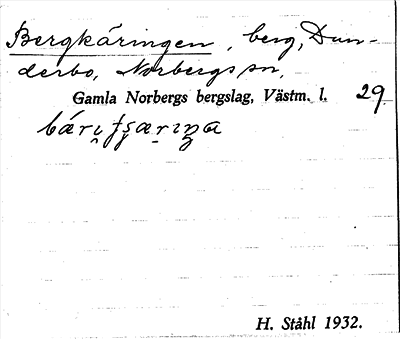 Bergkäringen, berg, Dun-
derbo, Norbergs sn,
Gamla Norbergs bergslag, Västm. l. 29.
H. Ståhl 1932.